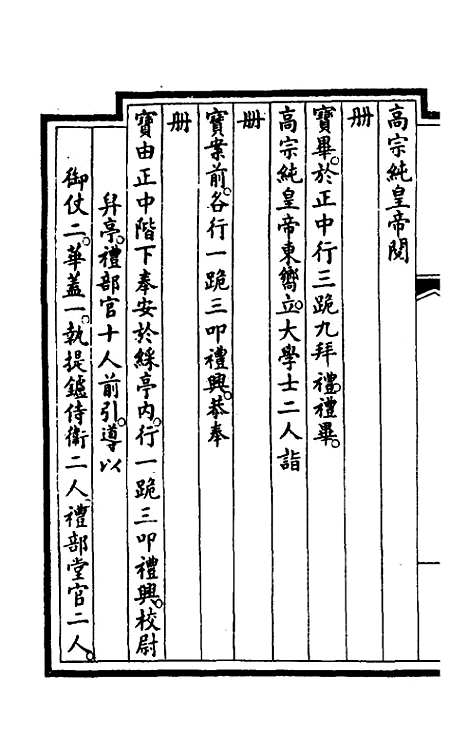 高宗純皇帝閱
冊
寶畢。於正中行三跪九拜禮。禮畢。
高宗純皇帝東嚮立。大學士二人詣
冊
寶案前。各行一跪三叩禮興。恭奉
冊
寶由正中階下奉安於綵亭內。行一跪三叩禮興。校尉
舁亭。禮部官十人前引。導以
御仗二。華蓋一。執提鑪侍衛二人、禮部堂官二人。